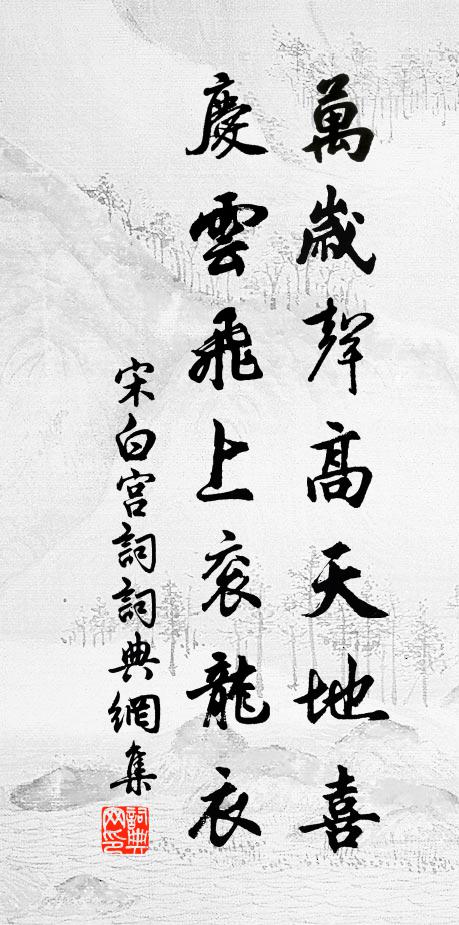 萬歲聲高天地喜
慶雲飛上衮龍衣
宋白宮詞詞典網集
詞典網印